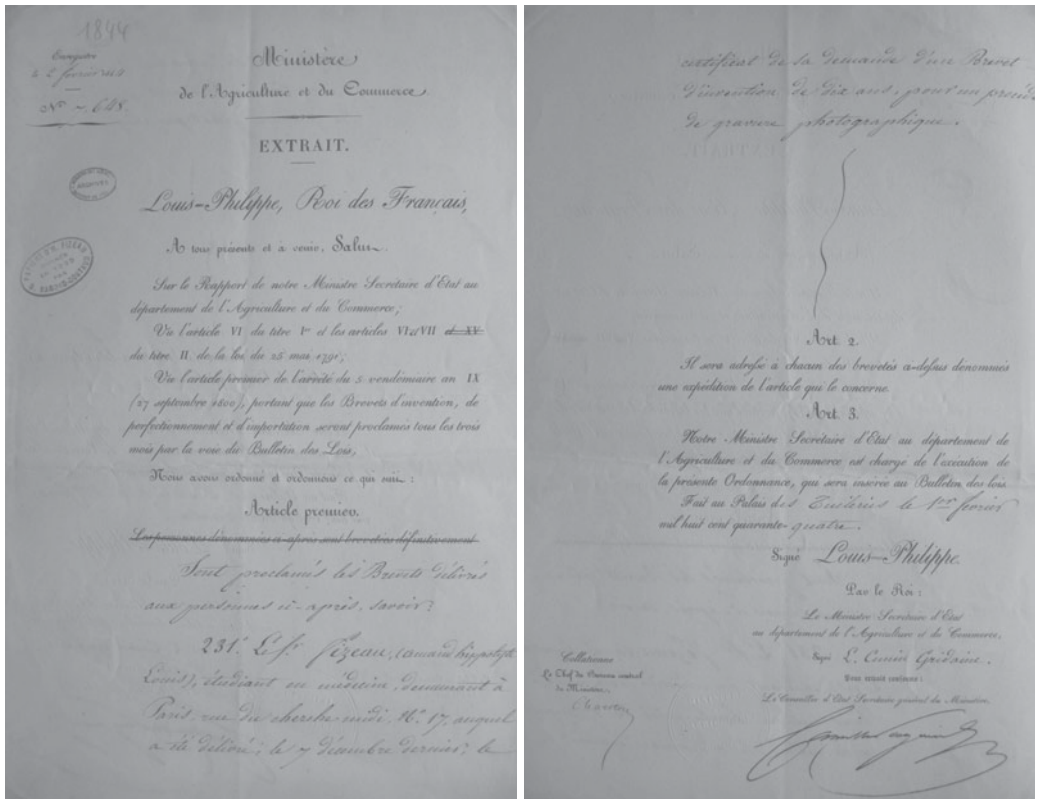 1844
Enregistré
le 2 février 1844
No 648
Ministère
de l'Agriculture et du Commerce
EXTRAIT.
Louis-Philippe, Roi des Français,
A tous présents et à venir, Salut.
Sur le Rapport de notre Ministre Secrétaire d'Etat au
département de l'Agriculture et du Commerce;
Vu l'article VI du titre Ier et les articles VI et VII et XV
du titre II de la loi du 25 mai 1791;
Vu l'article premier de l'arrêté du 5 vendémiaire an IX
(27 septembre 1800), portant que les Brevets d'invention, de
perfectionnement et d'importation seront proclamés tous les trois
mois par la voie du Bulletin des Lois,
Nous avons ordonné et ordonnons ce qui suit :
Article premier.
Les personnes dénommées ci-après sont brevetées définitivement
Sont proclamés les Brevets délivrés
aux personnes ci-après, savoir :
231° Le Sr Fizeau, (armand hippolyte
Louis), étudiant en médecine, demeurant à
Paris, rue du cherche midi, No 17, auquel
a été délivré, le 7 décembre dernier, le
certificat de sa demande d'un Brevet
d'invention de dix ans, pour un procédé
de gravure photographique.
Art. 2.
Il sera adressé à chacun des brevetés ci-dessus dénommés
une expédition de l'article qui le concerne.
Art. 3.
Notre Ministre Secrétaire d'Etat au département de
l'Agriculture et du Commerce est chargé de l'exécution de
la présente Ordonnance, qui sera insérée au Bulletin des lois.
Fait au Palais des Tuileries le 1er février
mil huit cent quarante-quatre.
Signé Louis-Philippe.
Par le Roi :
Le Ministre Secrétaire d'Etat
au département de l'Agriculture et du Commerce,
Signé L. Cunin Gridaine.
Pour extrait conforme :
Le Conseiller d'Etat Secrétaire général du Ministère,
Collationné
Le Chef du Bureau central
du Ministère,